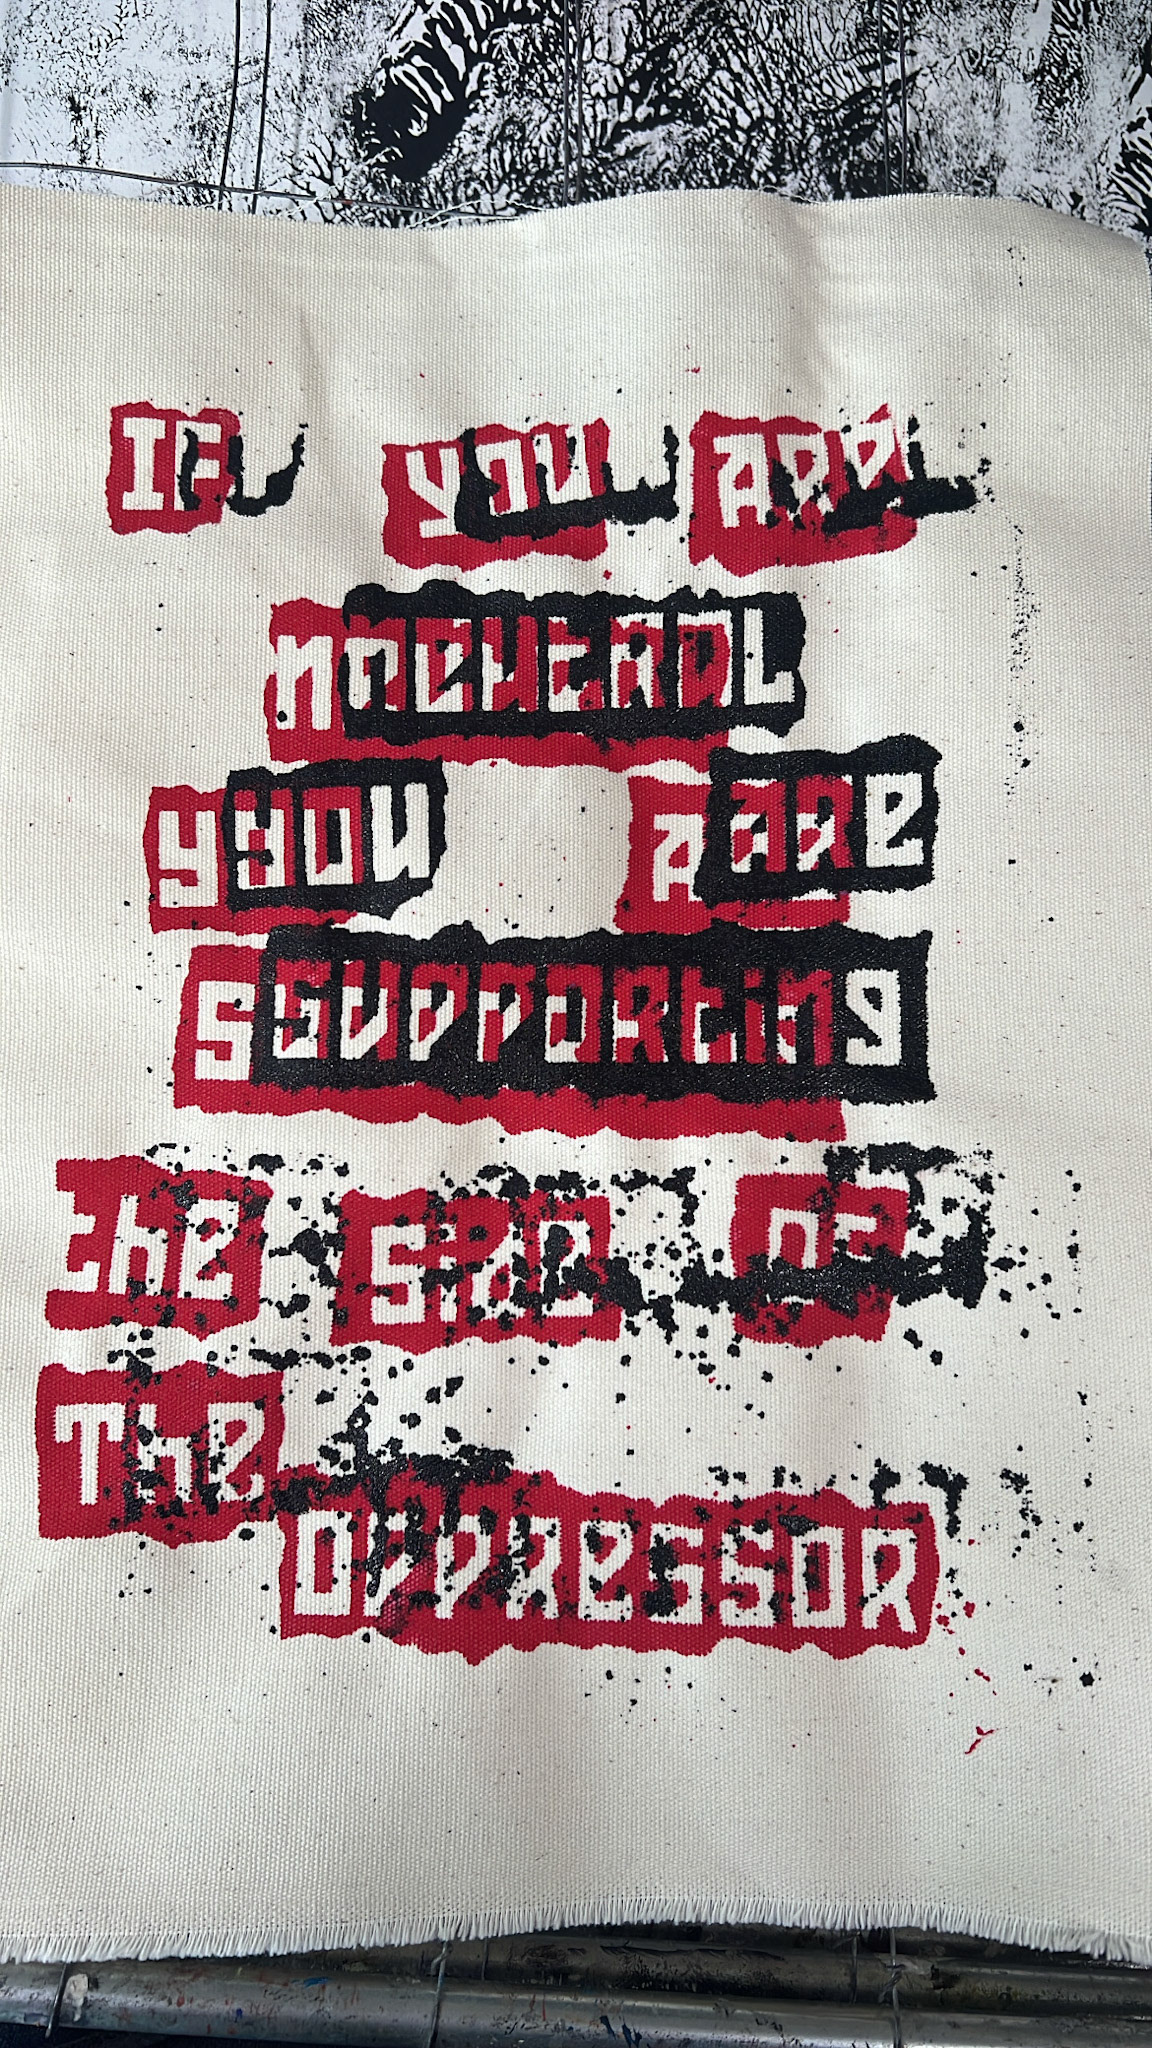 IF YOU ARE
NEUTRAL
YOU ARE
SUPPORTING
the SIDE OF
The
OPPRESSOR